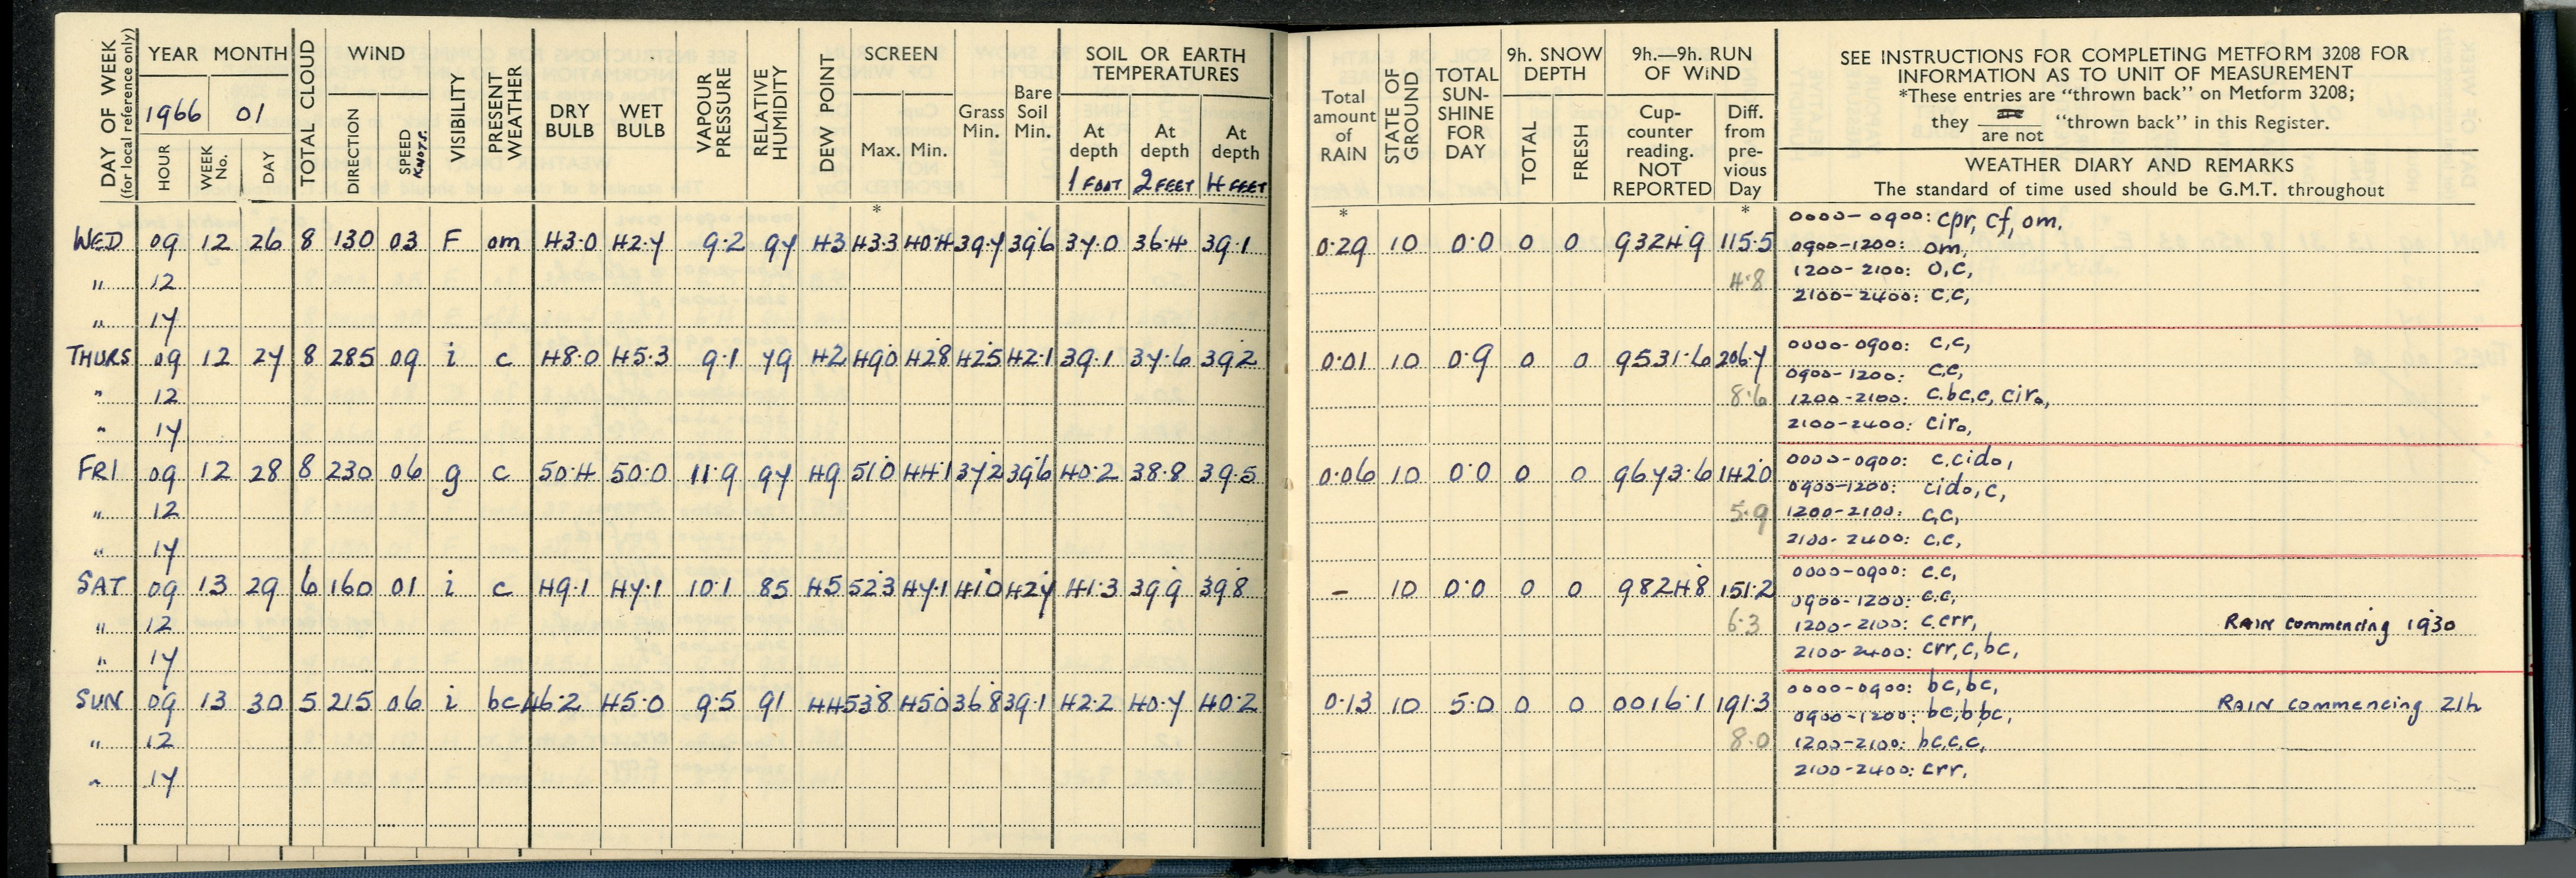 DAY OF WEEK (for local reference only)
YEAR MONTH
1966 01
HOUR WEEK No. DAY
TOTAL CLOUD
WIND
DIRECTION SPEED KNOTS.
VISIBILITY
PRESENT WEATHER
DRY BULB
WET BULB
VAPOUR PRESSURE
RELATIVE HUMIDITY
DEW POINT
SCREEN
Max. Min.
*
Grass Min.
Bare Soil Min.
SOIL OR EARTH TEMPERATURES
At depth 1 FOOT
At depth 2 FEET
At depth 4 FEET
Total amount of RAIN
*
STATE OF GROUND
TOTAL SUN-SHINE FOR DAY
9h. SNOW DEPTH
TOTAL FRESH
9h.—9h. RUN OF WIND
Cup-counter reading. NOT REPORTED
Diff. from pre-vious Day
*
SEE INSTRUCTIONS FOR COMPLETING METFORM 3208 FOR
INFORMATION AS TO UNIT OF MEASUREMENT
*These entries are "thrown back" on Metform 3208;
they are / are not "thrown back" in this Register.
WEATHER DIARY AND REMARKS
The standard of time used should be G.M.T. throughout
WED 09 12 26 8 130 03 F om 43.0 42.7 9.2 97 43 43.3 40.4 39.7 39.6 37.0 36.4 39.1 0.29 10 0.0 0 0 9324.9 115.5
0000-0900: cpr, cf, om.
0900-1200: om,
" 12 4.8
1200-2100: o,c,
2100-2400: c,c,
" 17
THURS 09 12 27 8 285 09 i c 48.0 45.3 9.1 79 42 49.0 42.8 42.5 42.1 39.1 37.6 39.2 0.01 10 0.9 0 0 9531.6 206.7
0000-0900: c,c,
0900-1200: c,c,
" 12 8.6
1200-2100: c.bc,c, ciro,
2100-2400: ciro,
" 17
FRI 09 12 28 8 230 06 g c 50.4 50.0 11.9 97 49 51.0 44.1 37.2 39.6 40.2 38.8 39.5 0.06 10 0.0 0 0 9673.6 142.0
0000-0900: c.cido,
0900-1200: cido, c,
" 12 5.9
1200-2100: c,c,
2100-2400: c,c,
" 17
SAT 09 13 29 6 160 01 i c 49.1 47.1 10.1 85 45 52.3 47.1 41.0 42.7 41.3 39.9 39.8 - 10 0.0 0 0 9824.8 151.2
0000-0900: c.c,
0900-1200: c.c,
" 12 6.3
1200-2100: c,crr, RAIN commencing 1930
2100-2400: crr,c,bc,
" 17
SUN 09 13 30 5 215 06 i bc 46.2 45.0 9.5 91 44 53.8 45.0 36.8 39.1 42.2 40.7 40.2 0.13 10 5.0 0 0 0016.1 191.3
0000-0900: bc,bc, RAIN commencing 21h
0900-1200: bc,b bc,
" 12 8.0
1200-2100: bc,c,c,
2100-2400: crr,
" 17